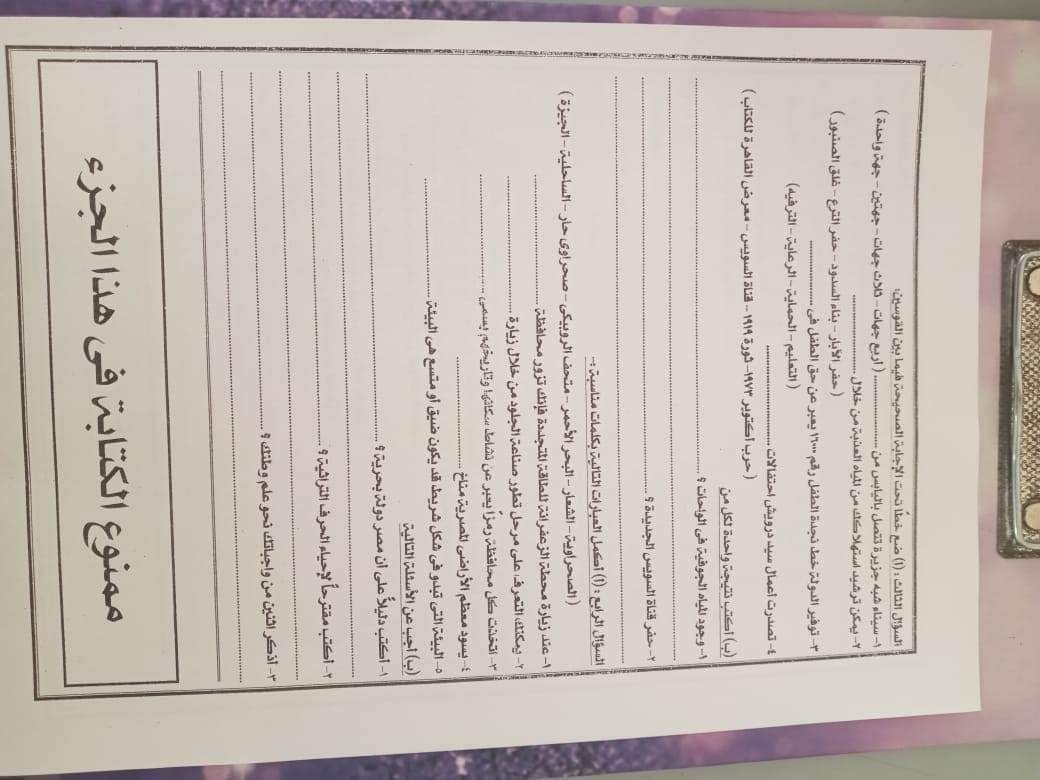 السؤال الثالث : (أ) ضع خطاً تحت الإجابة الصحيحة فيما بين القوسين:
١- سيناء شبه جزيرة تتصل باليابس من .................... ( أربع جهات - ثلاث جهات - جهتين - جهة واحدة )
٢- يمكن ترشيد استهلاكك من المياه العذبة من خلال ....................
( حفر الآبار - بناء السدود - حفر الترع - غلق الصنبور )
٣- توفير الدولة خط نجدة الطفل رقم ١٦٠٠٠ يعبر عن حق الطفل فى ....................
(التعليم - الحماية - الرعاية - الترفيه )
٤- تصدرت اعمال سيد درويش احتفالات ....................
( حرب أكتوبر ١٩٧٣ - ثورة ١٩١٩ - قناة السويس - معرض القاهرة للكتاب )
(ب) اكتب نتيجة واحدة لكل من
١- وجود المياه الجوفية فى الواحات ؟ ....................
....................
٢- حفر قناة السويس الجديدة ؟ ....................
....................
السؤال الرابع : (أ) أكمل العبارات التالية بكلمات مناسبة :-
( الصحراوية - الشعار - البحر الأحمر - متحف الروبيكى - صحراوى حار - الساحلية - الجيزة )
١- عند زيارة محطة الزعفرانة للطاقة المتجددة فإنك تزور محافظة ....................
٢- يمكنك التعرف على مرحل تطور صناعة الجلود من خلال زيارة ....................
٣- اتخذت كل محافظة رمزاً يعبر عن نشاط سكانها وتاريخهم يسمى ....................
٤- يسود معظم الأراضى المصرية مناخ ....................
٥- البيئة التى تبدو فى شكل شريط قد يكون ضيق او متسع هى البيئة ....................
(ب) أجب عن الأسئلة التالية
١- أكتب دليلاً على أن مصر دولة بحرية ؟ ....................
....................
٢- أكتب مقترحاً لإحياء الحرف التراثية ؟ ....................
....................
٣- أذكر اثنين من واجباتك نحو علم وطنك ؟ ....................
....................
....................
ممنوع الكتابة فى هذا الجزء